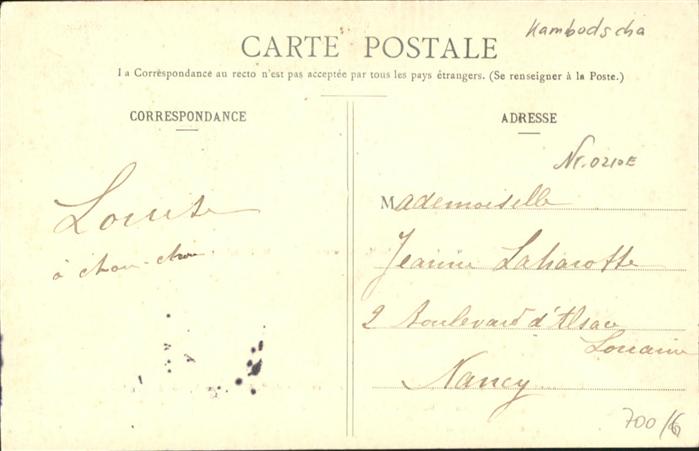 Kambodscha
CARTE POSTALE
La Correspondance au recto n'est pas acceptée par tous les pays étrangers. (Se renseigner à la Poste.)
CORRESPONDANCE
ADRESSE
Nr.0210E
Louise
à chou-chou
Mademoiselle
Jeanne Laharotte
2 Boulevard d'Alsace
Lorraine
Nancy
700/6